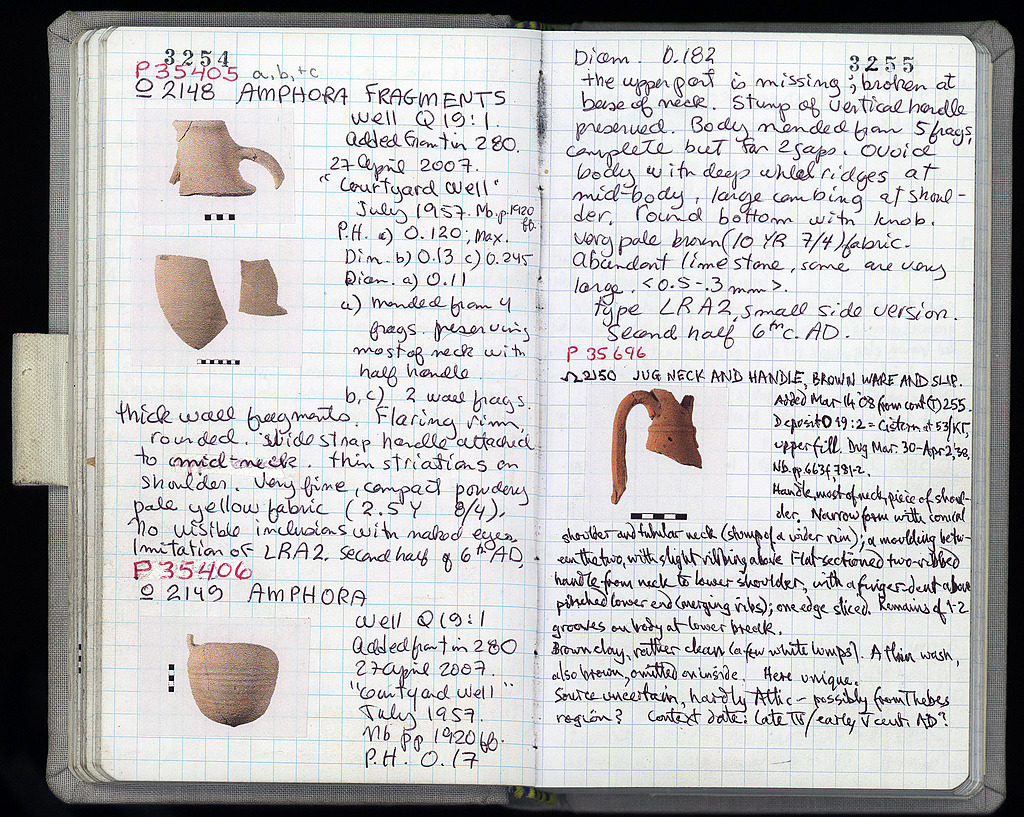 3254
P 35405 a, b, + c
O 2148 AMPHORA FRAGMENTS
Well Q 19:1.
Added from tin 280.
27 April 2007.
"Courtyard Well"
July 1957. Nb. p. 1920
ff.
P.H. a) 0.120; Max.
Dim. b) 0.13 c) 0.245
Diam. a) 0.11
a) mended from 4
frags. preserving
most of neck with
half handle.
b, c) 2 wall frags.
thick wall fragments. Flaring rim,
rounded. Wide strap handle attached
to mid-neck. thin striations on
shoulder. Very fine, compact powdery
pale yellow fabric (2.5 Y 8/4).
No visible inclusions with naked eyes.
Imitation of LRA2. Second half of 6th AD,
P 35406
O 2149 AMPHORA
Well Q 19:1
Added from tin 280
27 April 2007.
"Courtyard Well"
July 1957.
Nb pp 1920 ff.
P.H. 0.17
3255
Diam. 0.182
the upper part is missing; broken at
base of neck. Stump of vertical handle
preserved. Body mended from 5 frags,
complete but for 2 gaps. Ovoid
body with deep wheel ridges at
mid-body, large combing at shoul-
der. round bottom with knob.
Very pale brown (10 YR 7/4) fabric.
Abundant limestone, some are very
large. <0.5-.3 mm>.
type LRA2, small side version.
Second half 6th c. AD.
P 35696
Ω 2150 JUG NECK AND HANDLE, BROWN WARE AND SLIP.
Added Mar 14 '08 from cont (T) 255.
Deposit O 19:2 = Cistern at 53/ΚΓ,
upper fill. Dug Mar. 30-Apr 2, '38,
Nb. pp. 663f, 781-2.
Handle, most of neck, piece of shoul-
der. Narrow form with conical
shoulder and tubular neck (stump of a wider rim); a moulding betw-
een the two, with slight ribbing above. Flat-sectioned two-ribbed
handle from neck to lower shoulder, with a finger-dent above
pinched lower end (merging ribs); one edge sliced. Remains of 1-2
grooves on body at lower break.
Brown clay, rather clean (a few white lumps). A thin wash,
also brown, omitted on inside. Here unique.
Source uncertain, hardly Attic – possibly from Thebes
region? Context date: late IV/early V cent. AD?